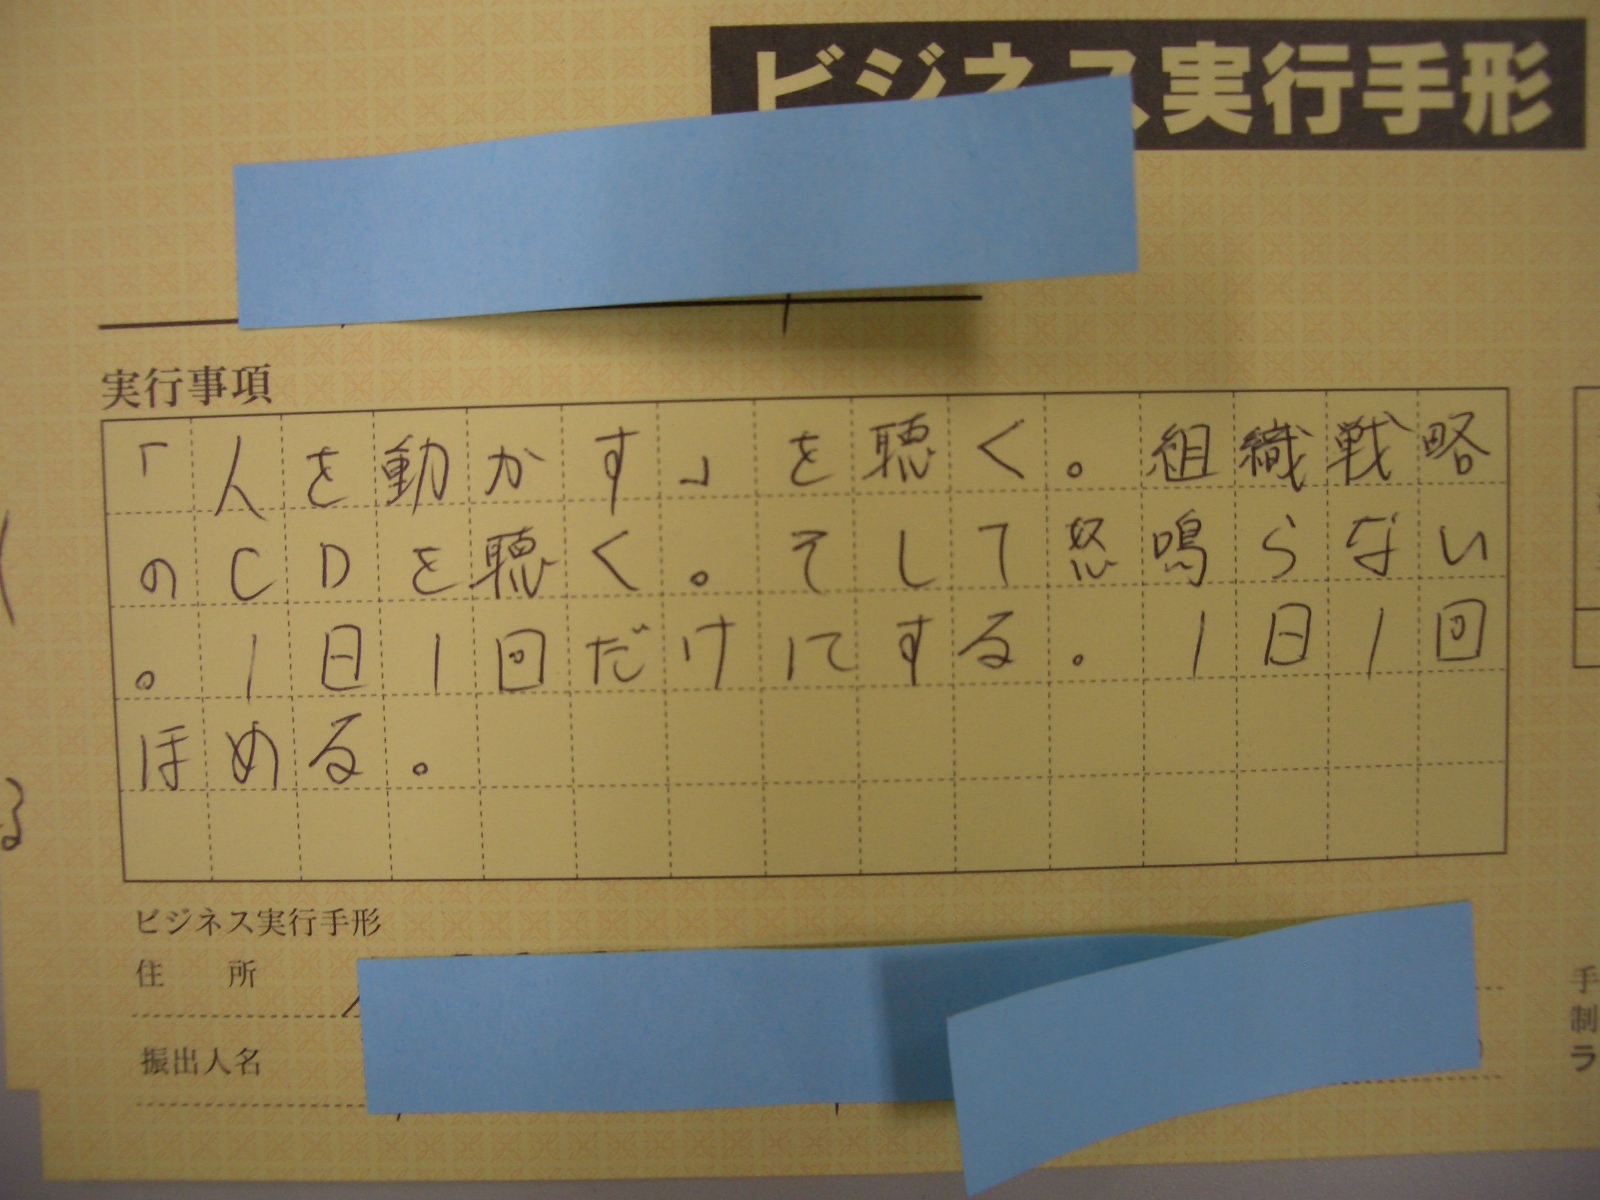 ビジネス実行手形
実行事項
「人を動かす」を聴く。組織戦略
のCDを聴く。そして怒鳴らない
。1日1回だけにする。1日1回
ほめる。
ビジネス実行手形
住 所
振出人名
手
制
ラ